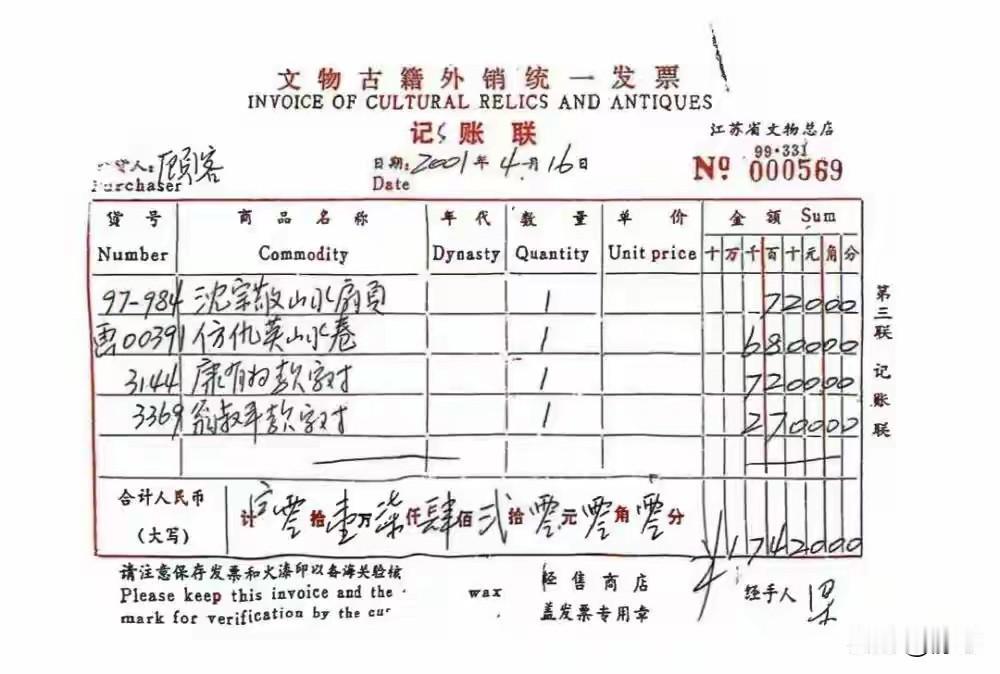 文物古籍外销统一发票
INVOICE OF CULTURAL RELICS AND ANTIQUES
记账联
江苏省文物总店
货人：顾客
Purchaser
日期：2001年4月16日
Date
99·331
Nº 000569
货号 商品名称 年代 数量 单价 金额 Sum
Number Commodity Dynasty Quantity Unit price 十万千百十元角分
97-984 沈宗敬山水扇页 1 72000
画00391 仿仇英山水卷 1 680000
3144 康有为款字对 1 720000
3369 翁叔平款字对 1 270000
合计人民币
（大写）
计零拾壹万柒仟肆佰贰拾零元零角零分
¥1742000
请注意保存发票和火漆印以备海关验核
Please keep this invoice and the wax
mark for verification by the cus
经售商店
盖发票专用章
经手人
第三联 记账联